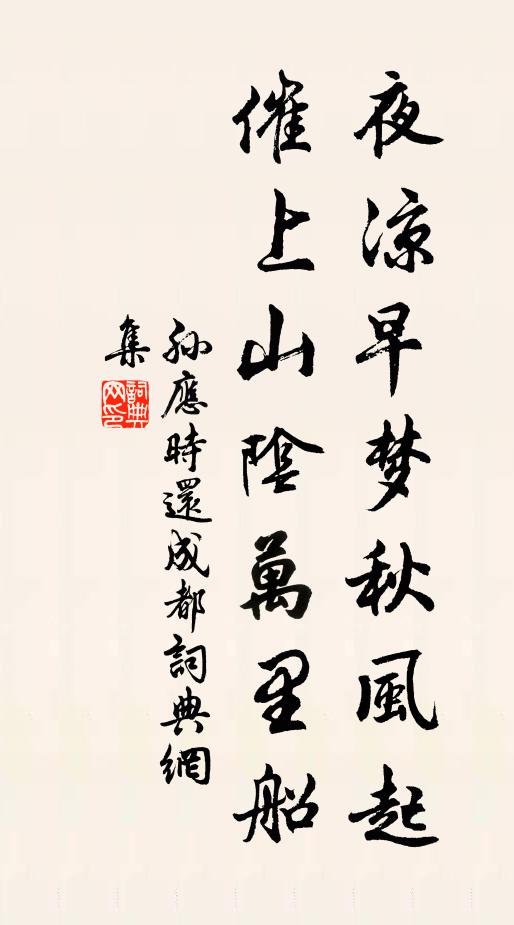 夜涼早梦秋風起
催上山陰萬里船
孫應時還成都詞典網
集
詞典
网印